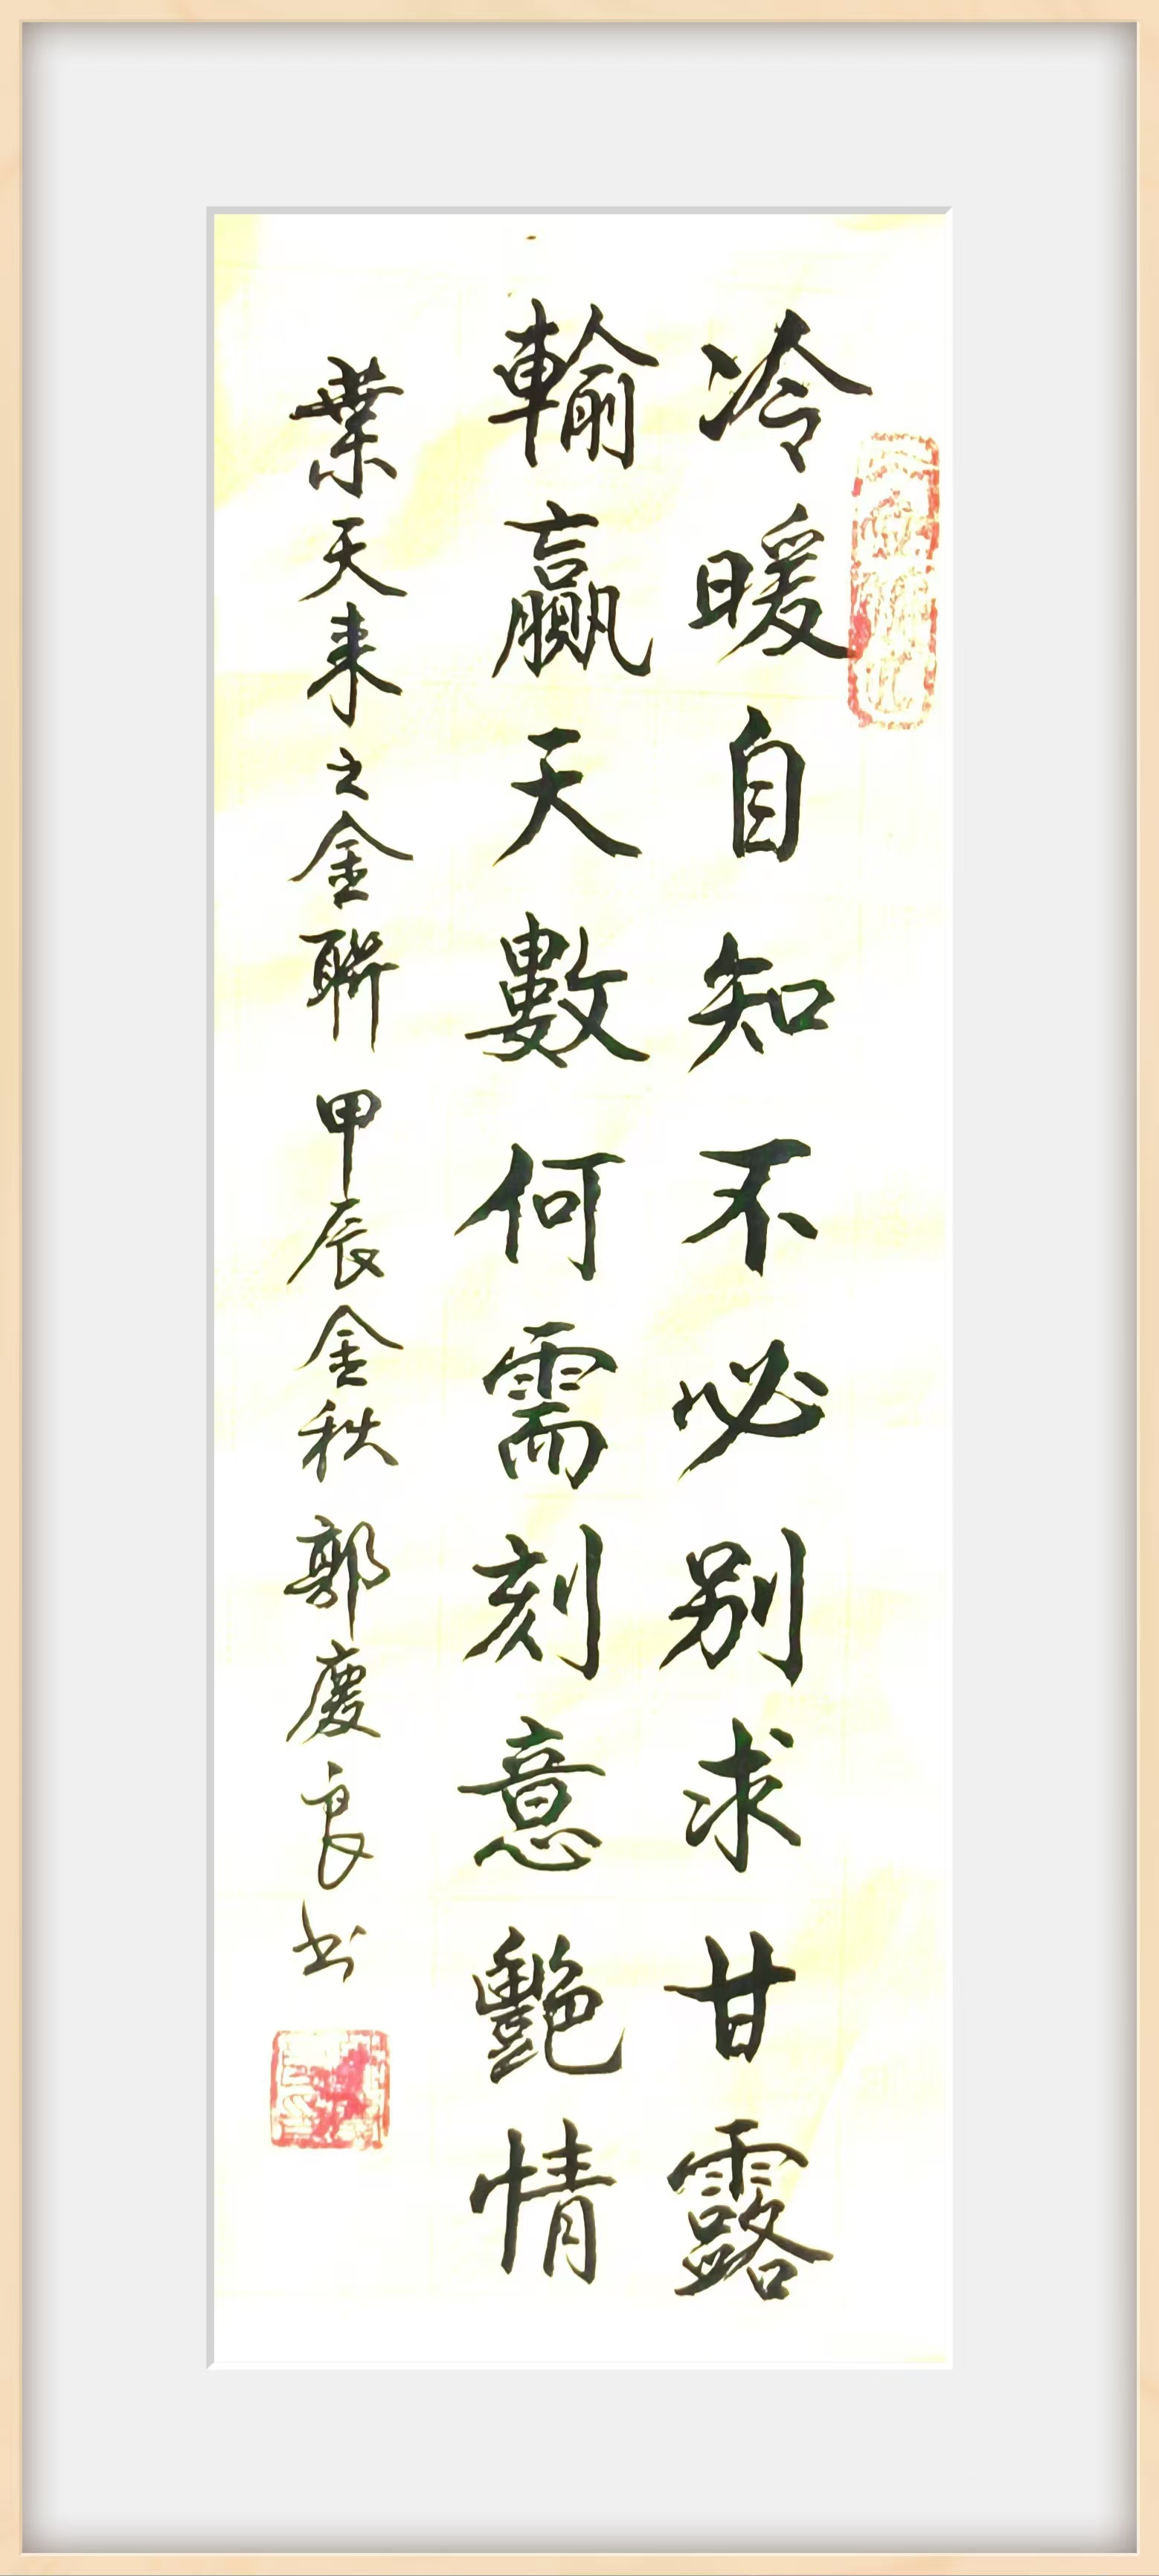 冷暖自知不必别求甘露
輸贏天數何需刻意艷情
葉天来之金聯 甲辰金秋 郭慶良书